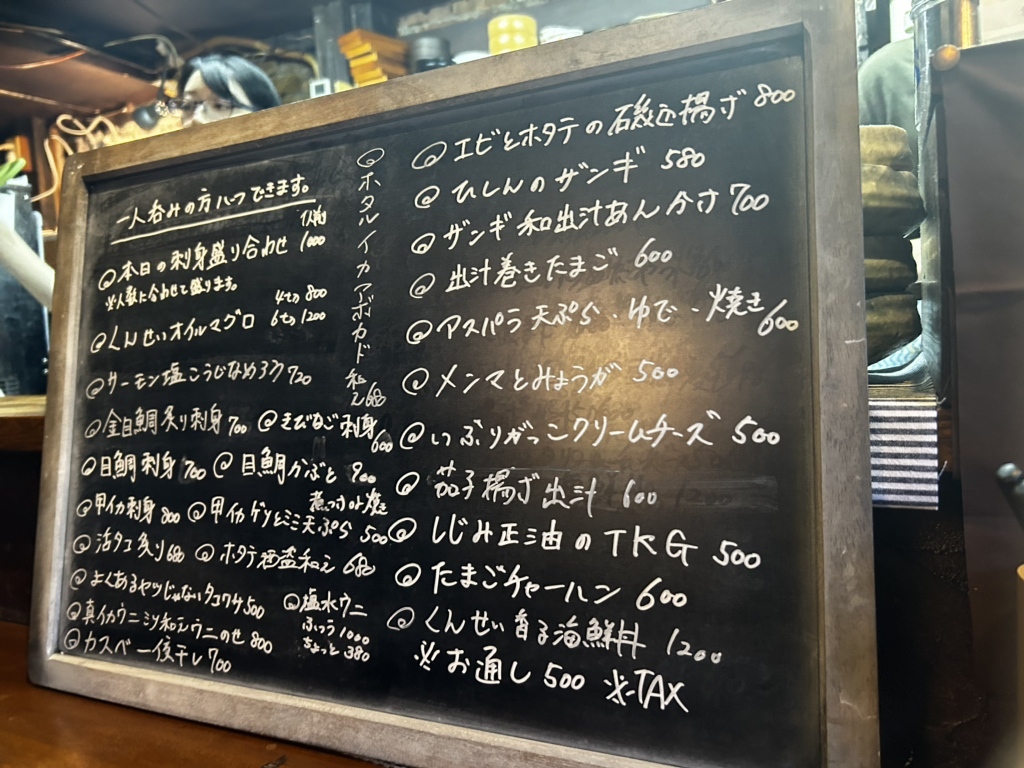 一人呑みの方ハーフできます。
1人前
◎本日の刺身盛り合わせ 1000
※人数に合わせて盛ります。
◎くんせいオイルマグロ 4切 800 6切 1200
◎サーモン塩こうじなめろう 720
◎金目鯛炙り刺身 700 ◎きびなご刺身 600
◎目鯛刺身 700 ◎目鯛かぶと 900
煮つけor焼き
◎甲イカ刺身 800 ◎甲イカゲソとミミ天ぷら 500
◎活タコ炙り 680 ◎ホタテ酒盗和え 680
◎よくあるヤツじゃないタコワサ 500
◎真イカウニミソ和えウニのせ 800
◎カスベ一夜干し 700
◎塩水ウニ
ふつう 1000
ちょっと 380
◎ホタルイカアボカド和え 680
◎エビとホタテの磯辺揚げ 800
◎ひしんのザンギ 580
◎ザンギ和出汁あんかけ 700
◎出汁巻きたまご 600
◎アスパラ天ぷら・ゆで・焼き 600
◎メンマとみょうが 500
◎いぶりがっこクリームチーズ 500
◎茄子揚げ出汁 600
◎しじみ正油のTKG 500
◎たまごチャーハン 600
◎くんせい香る海鮮丼 1200
※お通し 500 ※TAX